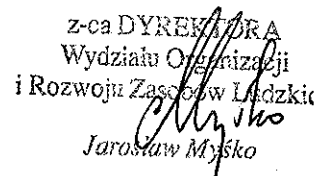 z-ca DYREKTORA
Wydziału Organizacji
i Rozwoju Zasobów Ludzkic
Jarosław Myśko